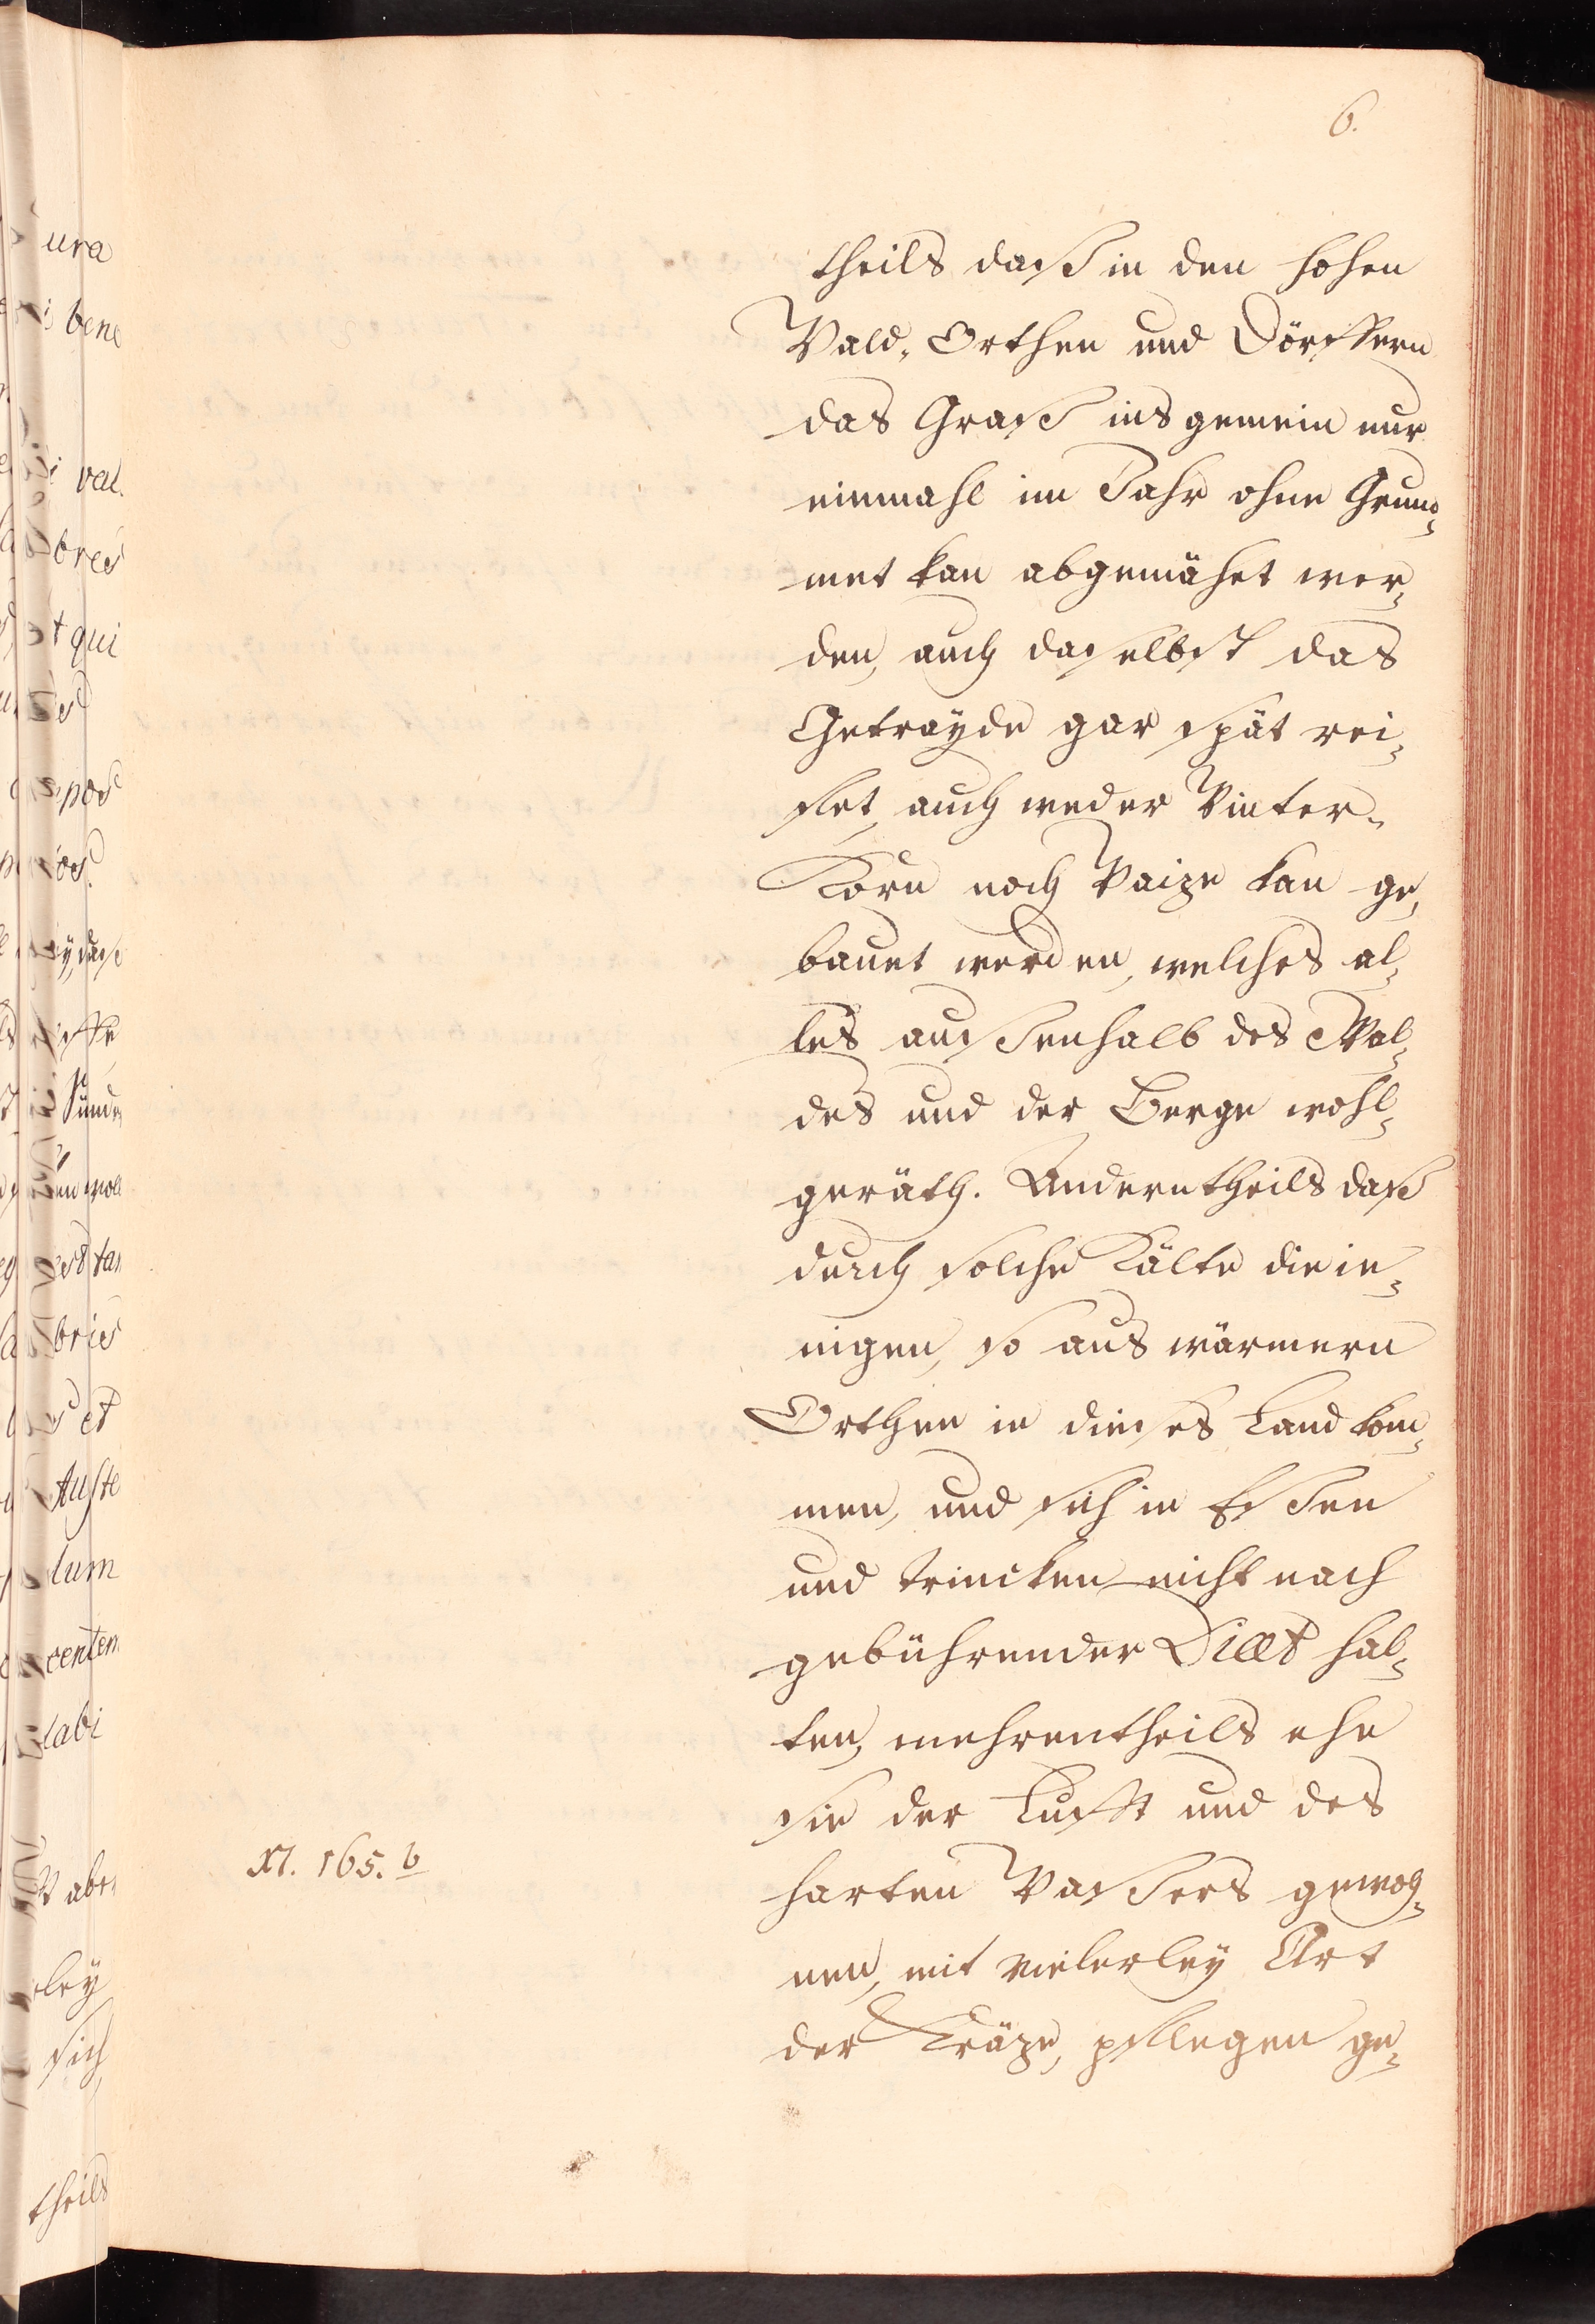 6.
theils daß in den hohen
Wald-Orthen und Dörffern
das Graß ins gemein nur
einmahl im Jahr ohne Grum-
met kan abgemähet wer-
den, auch daselbst das
Getrayde gar spät rei-
fet, auch weder Winter-
Korn noch Waize kan ge-
bauet werden, welches al-
les aussenhalb des Wal-
des und der Berge wohl-
geräth. Anderntheils daß
durch solche Kälte die ie-
nigen, so aus wärmern
Orthen in dieses Land kom-
men, und sich in Essen
und trincken nicht nach
gebührender Diæt hal-
ten, mehrentheils ehe
sie der Lufft und des
harten Wassers gewoh-
nen, mit vielerley Art
der Kräze, pflegen ge-
XI. 165. b
ura
bene
val.
bres
qui
pos
lum
centem
tabi
ley
sich
theils